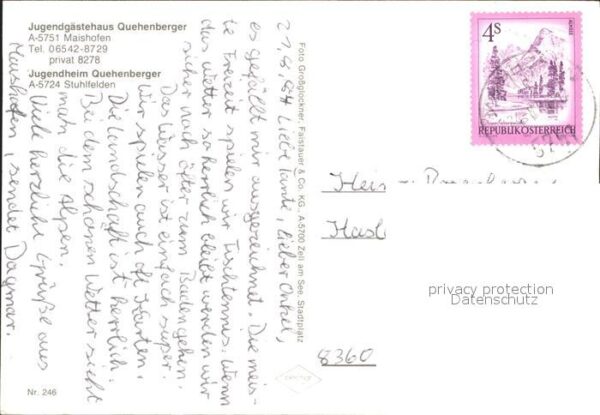 Jugendgästehaus Quehenberger
A-5751 Maishofen
Tel. 06542-8729
privat 8278
Jugendheim Quehenberger
A-5724 Stuhlfelden
Foto Großglockner, Falstauer & Co. KG., A-5700 Zell am See, Stadtplatz
21.8.84 Liebe Tante, lieber Onkel,
es gefällt mir ausgezeichnet. Die meis-
te Freizeit spielen wir Tischtennis. Wenn
das Wetter so herrlich bleibt werden wir
sicher noch öfter zum Baden gehen.
Das Wasser ist einfach super.
Wir spielen auch oft Karten.
Die Landschaft ist herrlich.
Bei dem schönen Wetter sieht
man die Alpen.
Viele herzliche Grüße aus
Maishofen, sendet Dagmar.
4S
REPUBLIK ÖSTERREICH
Hasl
8360
privacy protection
Datenschutz
Nr. 246